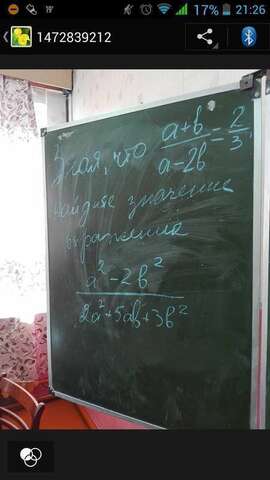 17% 21:26
1472839212
Зная, что a+b/a-2b = 2/3,
найдите значение
выражения
a²-2b²
2a²+5ab+3b²